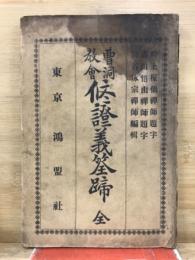 上楳仙禪師題字
田悟由禪師題字
宗禪師編輯
曹洞教會
修證義筌蹄 全
東京 鴻盟社